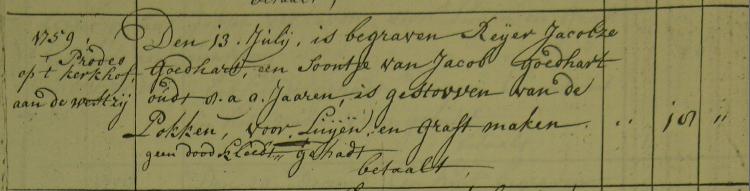 betaalt,
1759,
Prodeo
op 't kerkhof
aan de westzij
Den 13. Julij, is begraven Reijer Jacobze
Goedhart, een Soontje van Jacob Goedhart
oudt 8. a 9. Jaaren, is gestorven van de
Pokken, voor Luijën, en graft maken " 15 "
geen dood kleedt gehadt
betaalt,